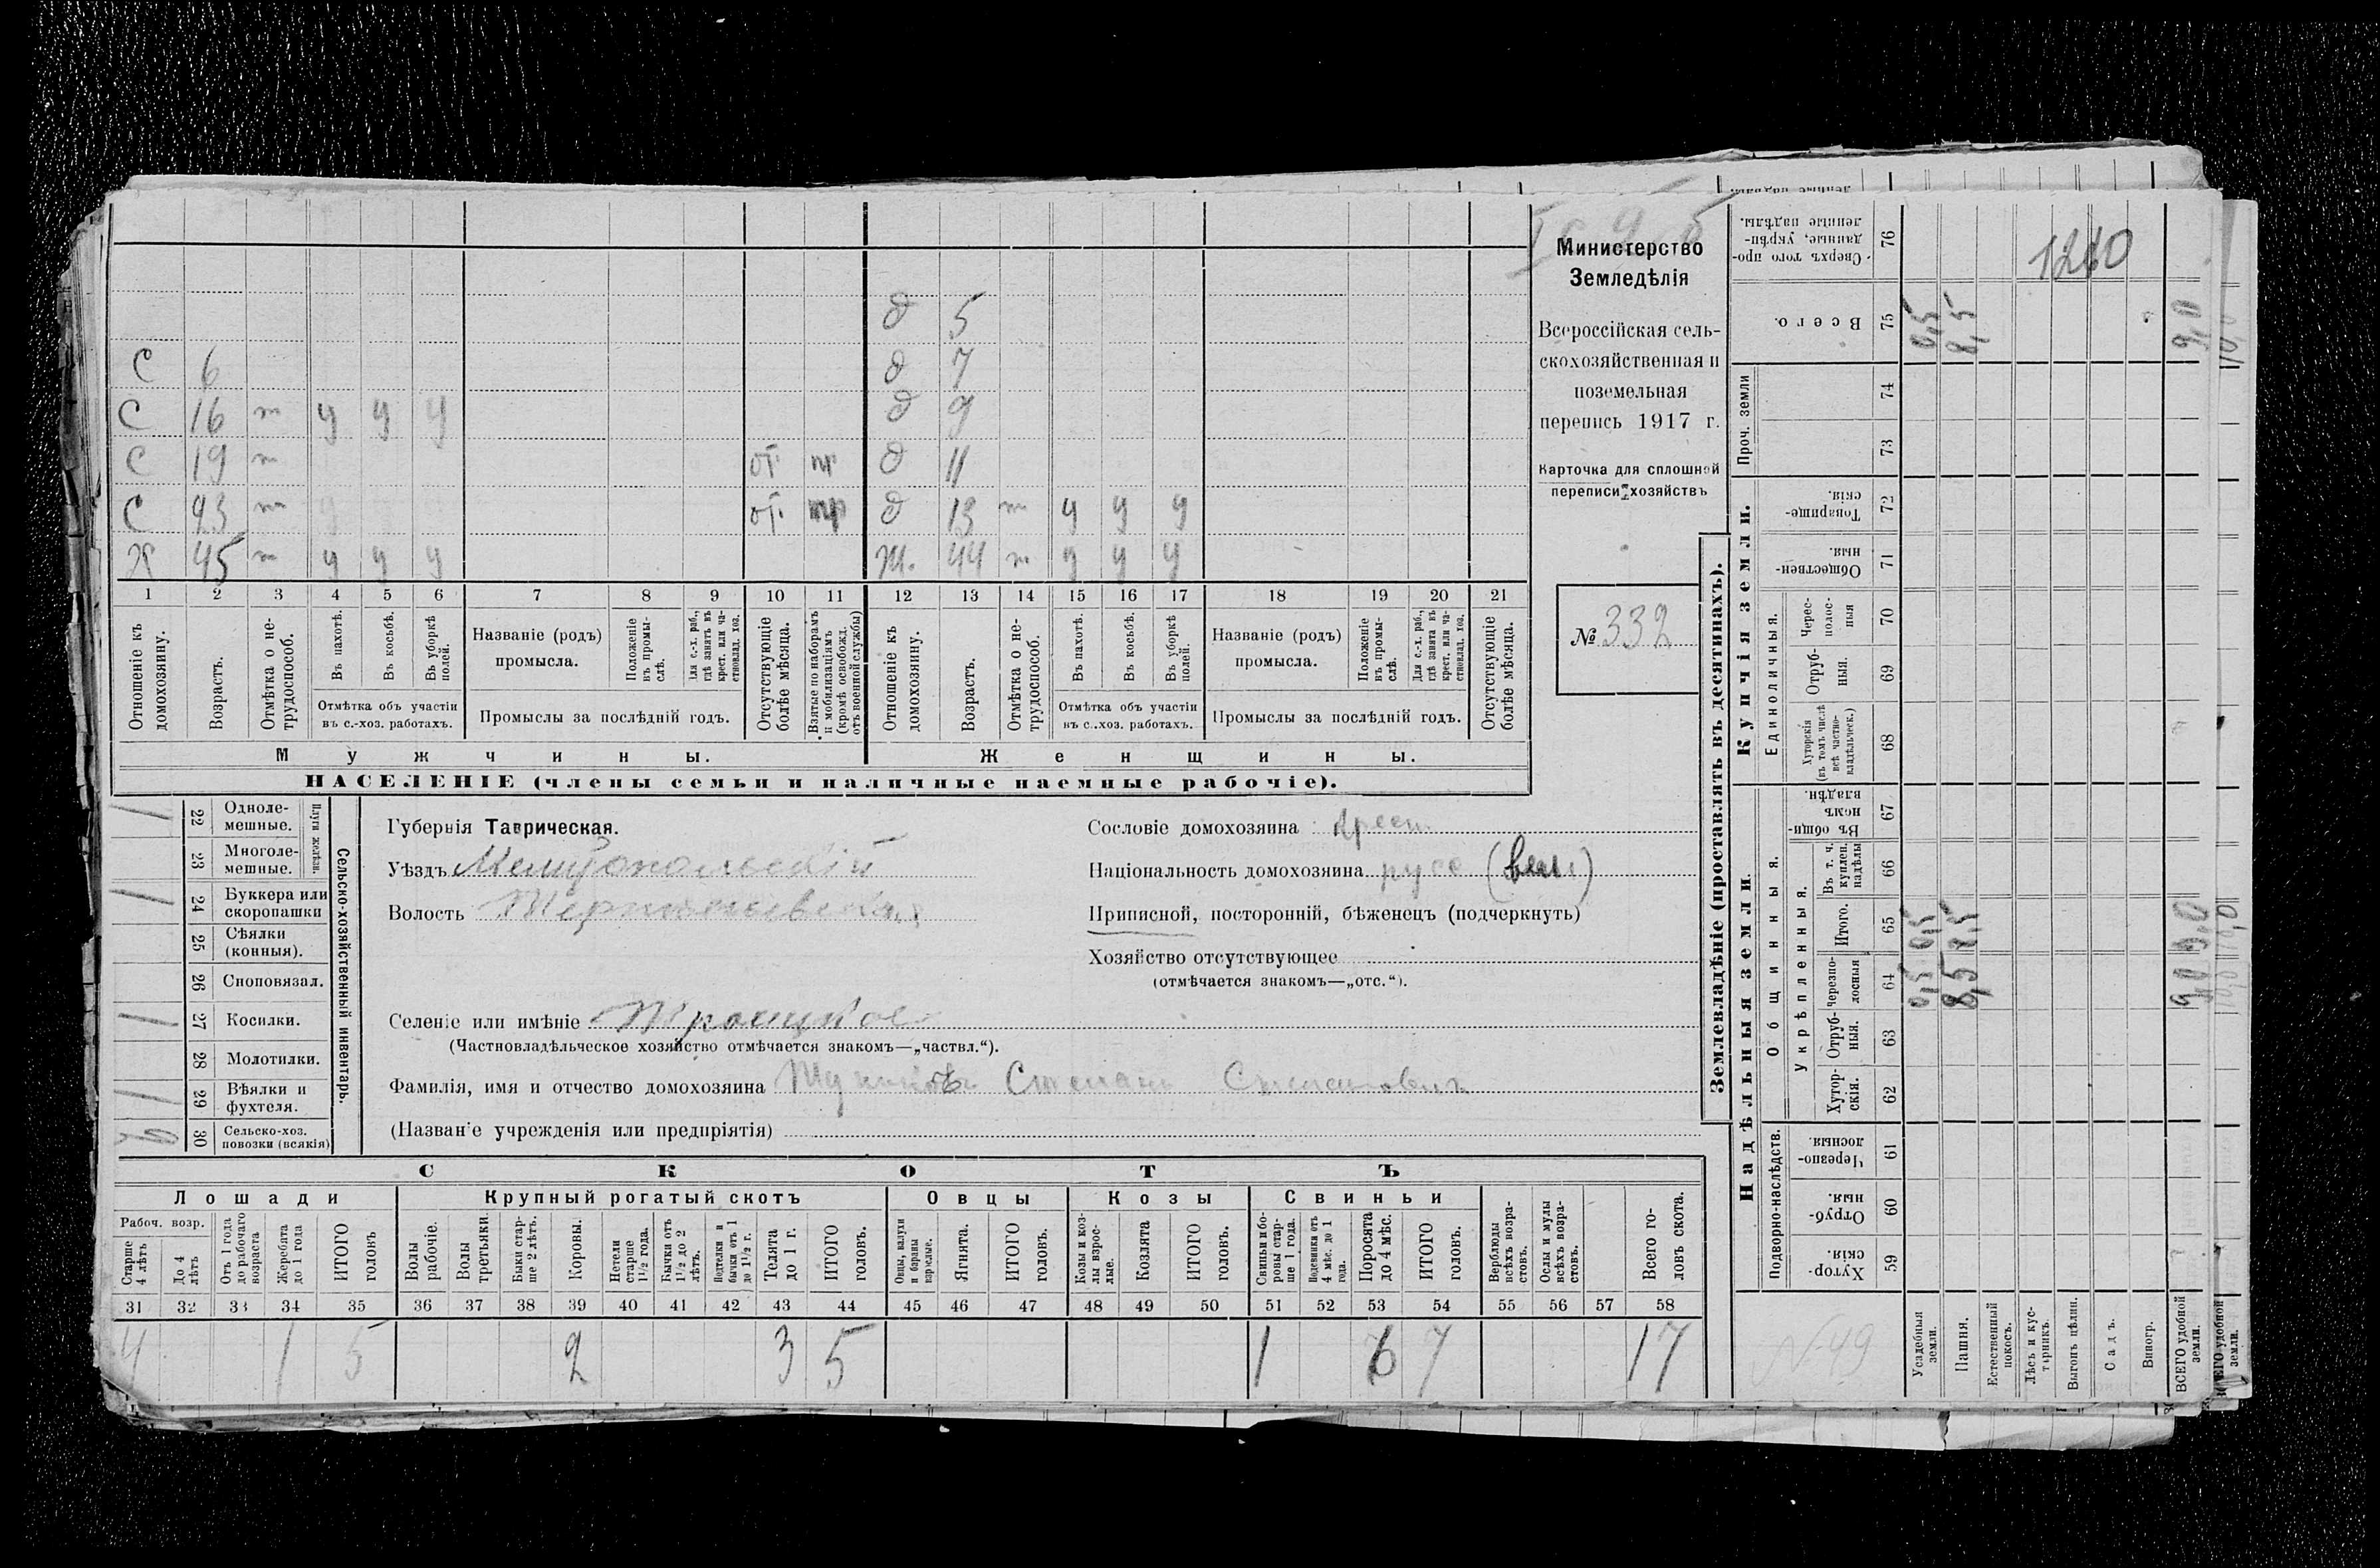 д 5
С 6 д 7
С 16 т у у у д 9
С 19 т от пр д 11
С 23 т от. пр д 13 т у у у
Х 45 т у у у Ж. 44 т у у у
1 2 3 4 5 6 7 8 9 10 11 12 13 14 15 16 17 18 19 20 21
Отношеніе къ домохозяину.
Возрастъ.
Отмѣтка о не-трудоспособ.
Въ пахотѣ.
Въ косьбѣ.
Въ уборкѣ полей.
Отмѣтка объ участіи
въ с.-хоз. работахъ.
Названіе (родъ)
промысла.
Положеніе въ промы-слѣ.
Для с.-х. раб., гдѣ занятъ въ крест. или ча-стновлад. хоз.
Промыслы за послѣдній годъ.
Отсутствующіе болѣе мѣсяца.
Взятые по наборамъ и мобилизаціямъ (кромѣ освобожд. отъ военной службы)
Отношеніе къ домохозяину.
Возрастъ.
Отмѣтка о не-трудоспособ.
Въ пахотѣ.
Въ косьбѣ.
Въ уборкѣ полей.
Отмѣтка объ участіи
въ с.-хоз. работахъ.
Названіе (родъ)
промысла.
Положеніе въ промы-слѣ.
Для с.-х. раб., гдѣ занята въ крест. или ча-стновлад. хоз.
Промыслы за послѣдній годъ.
Отсутствующіе болѣе мѣсяца.
Мужчины. Женщины.
НАСЕЛЕНІЕ (члены семьи и наличные наемные рабочіе).
Министерство
Земледѣлія
Всероссійская сель-
скохозяйственная и
поземельная
перепись 1917 г.
Карточка для сплошной
переписи хозяйствъ
№ 332
Сельско-хозяйственный инвентарь.
Плуги желѣзн.
1 22 Одноле-мешные.
23 Многоле-мешные.
1 24 Буккера или скоропашки
25 Сѣялки (конныя).
26 Сноповязал.
1 27 Косилки.
28 Молотилки.
1 29 Вѣялки и фухтеля.
30 Сельско-хоз. повозки (всякія)
Губернія Таврическая.
Уѣздъ Мелитопольскій
Волость
Сословіе домохозяина Крест.
Національность домохозяина русс (вел)
Приписной, посторонній, бѣженецъ (подчеркнуть)
Хозяйство отсутствующее
(отмѣчается знакомъ—„отс.“).
Селеніе или имѣніе Троицкое
(Частновладѣльческое хозяйство отмѣчается знакомъ—„частвл.“).
Фамилія, имя и отчество домохозяина Степанъ Степановичъ
(Названіе учрежденія или предпріятія)
СКОТЪ
Лошади Крупный рогатый скотъ Овцы Козы Свиньи
Рабоч. возр.
Старше 4 лѣтъ
До 4 лѣтъ
Отъ 1 года до рабочаго возраста
Жеребята до 1 года
ИТОГО головъ
Волы рабочіе.
Волы третьяки.
Быки стар-ше 2 лѣтъ.
Коровы.
Нетели старше 1½ года.
Бычки отъ 1½ до 2 лѣтъ.
Подтелки и бычки отъ 1 до 1½ г.
Телята до 1 г.
ИТОГО головъ.
Овцы, валухи и бараны взрослые.
Ягнята.
ИТОГО головъ.
Козы и коз-лы взрос-лые.
Козлята
ИТОГО головъ.
Свиньи и бо-ровы стар-ше 1 года.
Подсвинки отъ 4 мѣс. до 1 года.
Поросята до 4 мѣс.
ИТОГО головъ.
Верблюды всѣхъ возра-стовъ.
Ослы и мулы всѣхъ возра-стовъ.
Всего го-ловъ скота.
31 32 33 34 35 36 37 38 39 40 41 42 43 44 45 46 47 48 49 50 51 52 53 54 55 56 57 58
4 1 5 2 3 5 1 6 7 17
Землевладѣніе (проставлять въ десятинахъ).
Надѣльныя земли
Купчія земли.
Проч. земли
Подворно-наслѣдств.
Общинныя.
Укрѣпленныя.
Единоличныя.
Хутор-скія. 59
Отруб-ныя. 60
Черезпо-лосныя 61
Хутор-скія. 62
Отруб-ныя. 63
Черезпо-лосныя 64
Итого. 65
Въ т. ч. куплен. надѣлы 66
Въ общин-номъ владѣн. 67
Хуторскія (въ томъ числѣ всѣ частно-владѣльческ.) 68
Отруб-ныя. 69
Черес-полос-ныя 70
Обществен-ныя. 71
Товарище-скія. 72
73
74
Всего. 75
Сверхъ того про-данные, укрѣп-ленные надѣлы. 76
Усадебныя земли. 0,5 0,5 0,5
Пашня. 8,5 8,5 8,5
Естественный покосъ.
Лѣсъ и кус-тарникъ.
Выгонъ цѣлин.
Садъ.
Виногр.
ВСЕГО удобной земли. 9,0 9,0 9,0
№49